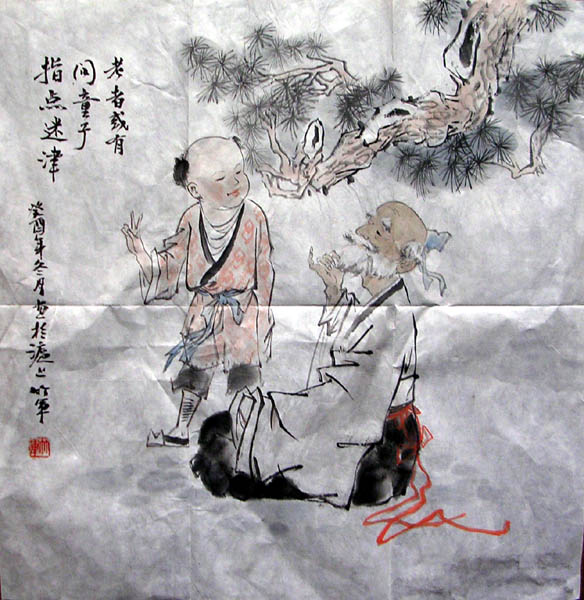 老者或有
问童子
指点迷津
癸酉年冬月画於滬上竹军